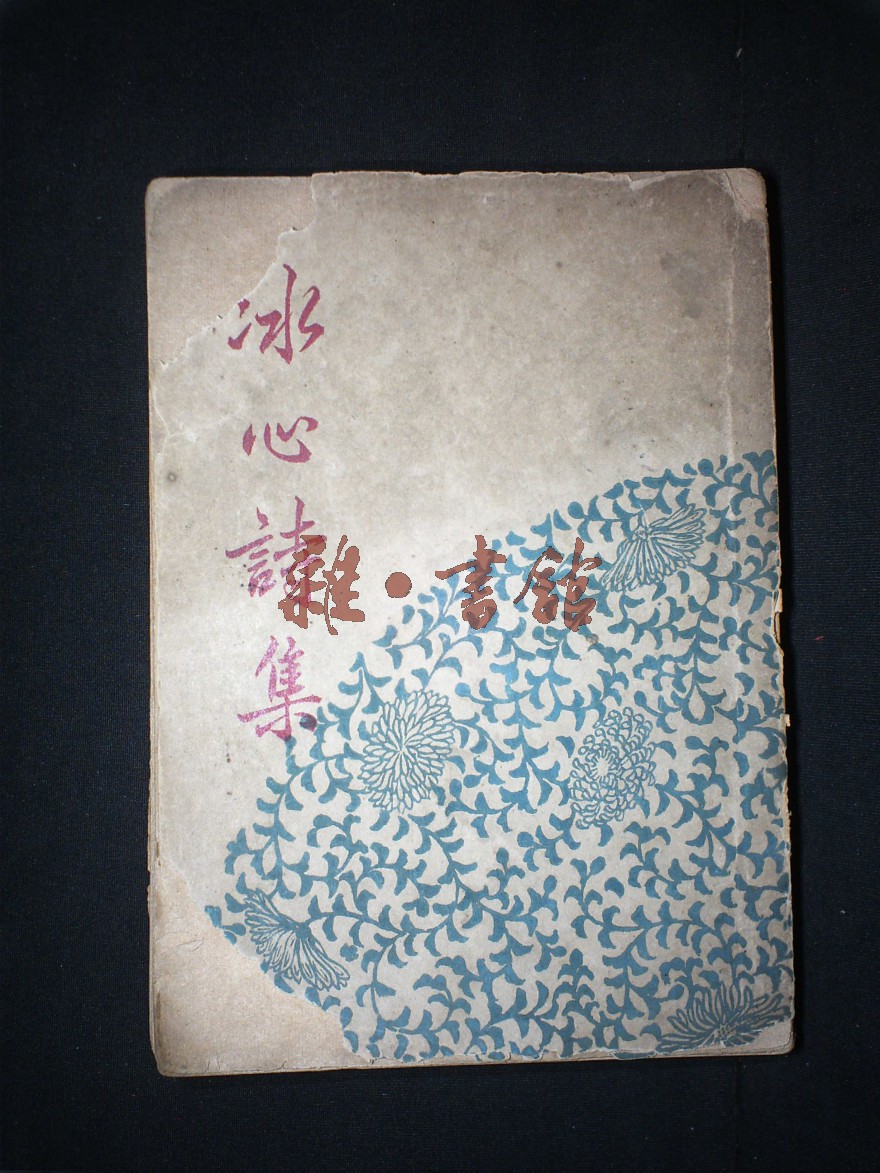 冰心詩集
雜·書館